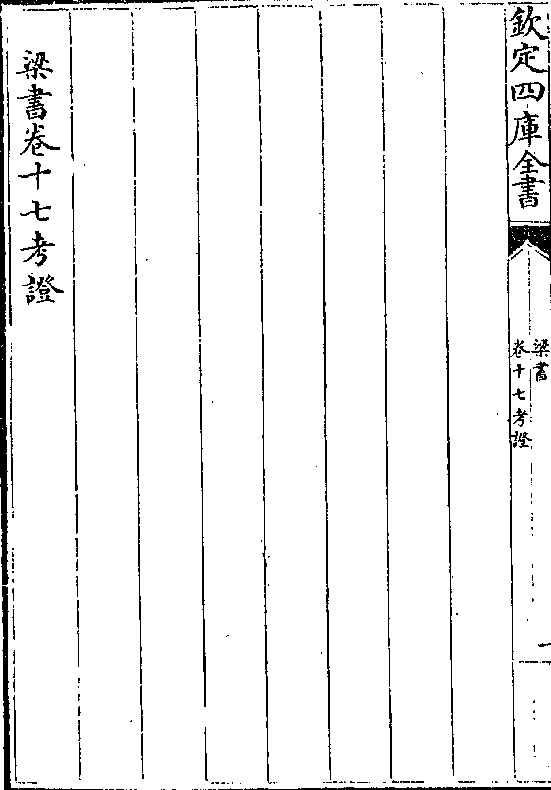 欽定四庫全書
梁書
卷十七考證
一
梁書卷十七考證